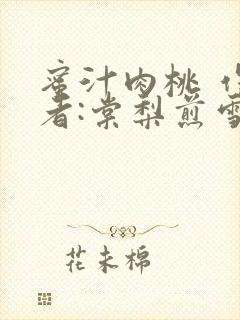 蜜汁肉桃 作
者:棠梨煎雪
花未棉